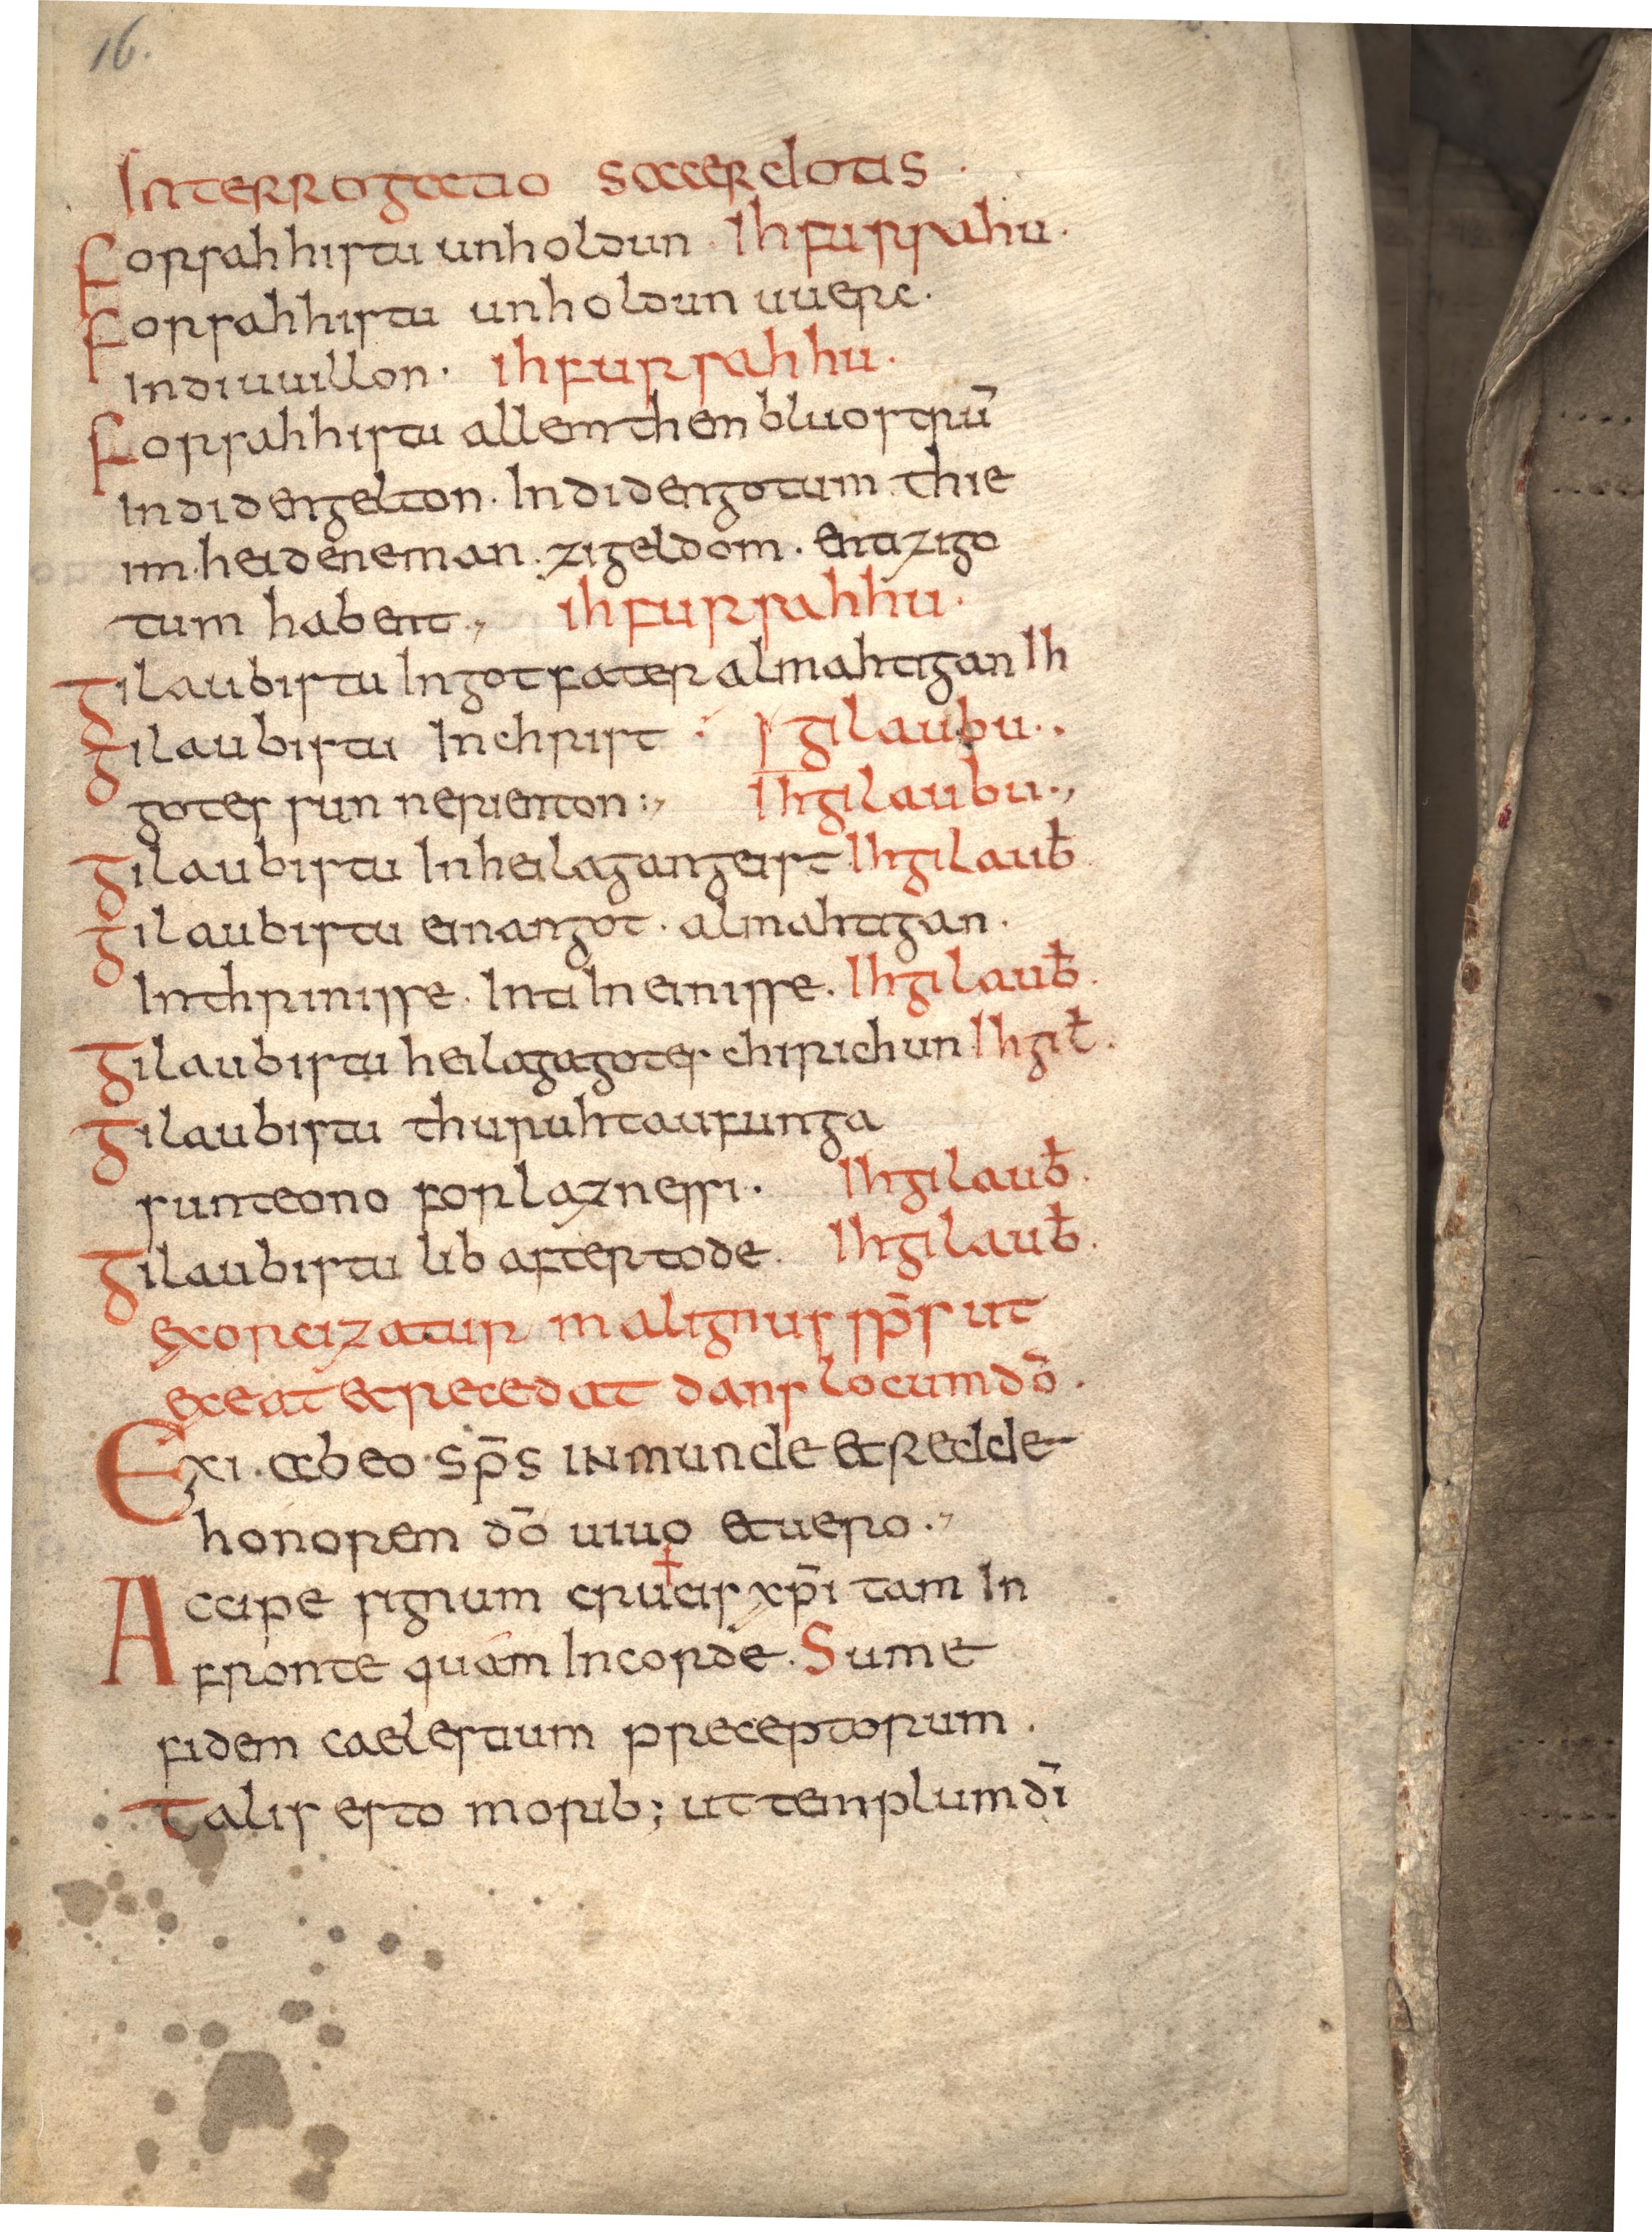 16.
Interrogatio sacerdotis.
Forsahhistu unholdun. Ihfursahu.
Forsahhistu unholdun uuerc.
Indiuuillon. ihfursahhu.
Forsahhistu allemthem bluostrū
Indidengelton. Indidengotum. thie
im.heideneman. zigeldom. entizigo
tum habent., ihfursahhu.
Gilaubistu Ingotfater almahtigan Ih
Gilaubistu Inchrist : gilaubu.,
gotes sun nerienton:, Ihgilaubu.,
Gilaubistu Inheilagangeist. Ihgilaub̄.
Gilaubistu einangot. almahtigan.
Inthrinisse. Inti In einisse. Ihgilaub̄.
Gilaubistu heilagagotes chirichun. Ihgil̄.
Gilaubistu thuruhtaufunga
sunteono forlaznessi. Ihgilaub̄.
Gilaubistu lib aftertode. Ihgilaub̄.
exorcizatur malignus sp̄s ut
exeat &recedat dans locum dō.
Exi. ab eo. sp̄s inmunde &redde
honorem dō uiuo &uero.,
Accipe signum crucis ✝ xp̄i tam In
fronte quam Incorde. Sume
fidem caelestium preceptorum.
Talis esto morib; ut templum dī